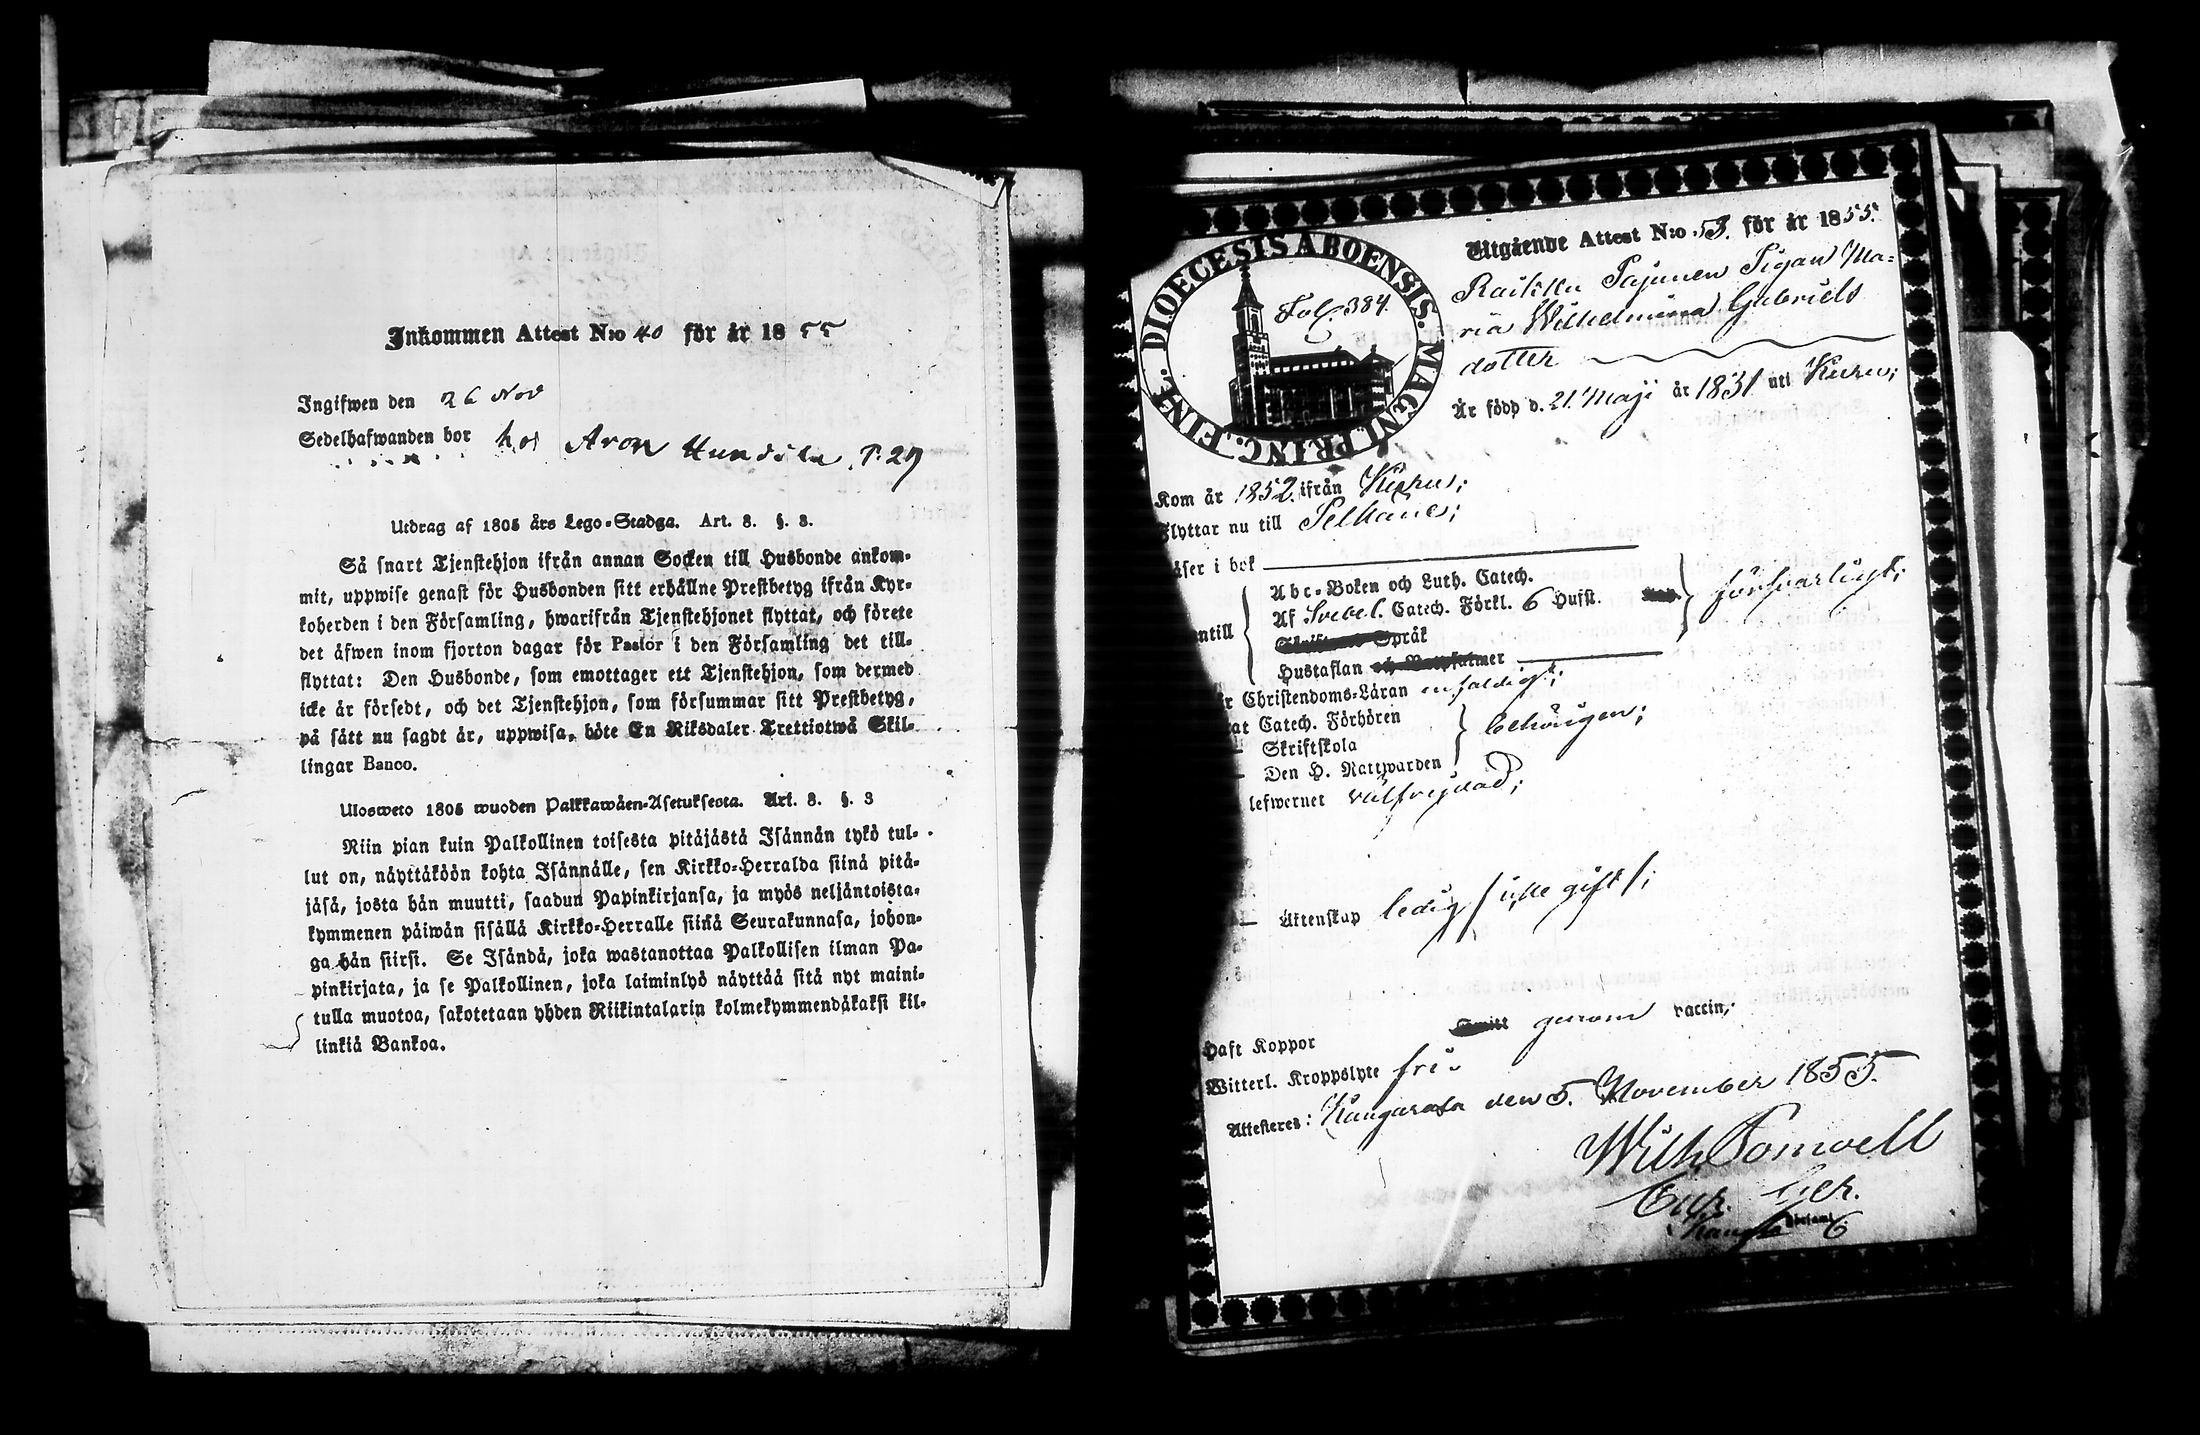 Inkommen Attest N:o 40 för år 1855
Ingifwen den 26 Nov
Sedelhafwanden bor hos Aron Hundila P. 27
Utdrag af 1805 års Lego-Stadga. Art. 8. §. 3.
Så snart Tjenstehjon ifrån annan Socken till Husbonde ankom-
mit, uppwise genast för Husbonden sitt erhållne Prestbetyg ifrån Kyr-
koherden i den Församling, hwarifrån Tjenstehjonet flyttat, och förete
det äfwen inom fjorton dagar för Pastor i den Församling det till-
flyttat: Den Husbonde, som emottager ett Tjenstehjon, som dermed
icke är försedt, och det Tjenstehjon, som försummar sitt Prestbetyg,
på sätt nu sagdt är, uppwisa, böte En Riksdaler Trettiotwå Skil-
lingar Banco.
Ulosweto 1805 wuoden Palkkawäen-Asetuksesta. Art. 8. §. 3
Niin pian kuin Palkollinen toisesta pitäjästä Isännän tykö tul-
lut on, näyttäköön kohta Isännälle, sen Kirkko-Herralda siinä pitä-
jäsä, josta hän muutti, saadun Papinkirjansa, ja myös neljäntoista-
kymmenen päiwän sisällä Kirkko-Herralle siinä Seurakunnasa, johon-
ga hän siirsi. Se Isändä, joka wastanottaa Palkollisen ilman Pa-
pinkirjata, ja se Palkollinen, joka laiminlyö näyttää sitä nyt maini-
tulla muotoa, sakotetaan yhden Riikintalarin kolmekymmendäkaksi kil-
linkiä Bankoa.
DIOECESIS ABOENSIS. MAGNI PRINC. FINL.
Fol. 384.
Utgående Attest N:o 53. för år 1855.
Raikku Pajunen Pigan Ma-
ria Wilhelmina Gabriels
dotter
Är född d. 21. Maji år 1831 uti Kuru;
Kom år 1852 ifrån Kuru;
Flyttar nu till Pelkäne;
äser i bok
Abc-Boken och Luth. Catech.
Af Svebel. Catech. Förkl. 6 Hufst.
ntill
Språk
försvarligt;
Hustaflan
r Christendoms-Läran enfaldigt;
at Catech. Förhören
Skriftskola
behörigen;
Den H. Nattwarden
lefwernet välfrejdad;
Äktenskap ledig /icke gift/;
Haft Koppor genom vaccin;
Witterl. Kroppslyte fri.
Attesteres: Kangasala den 5. November 1855.
Wilh. Pomoell